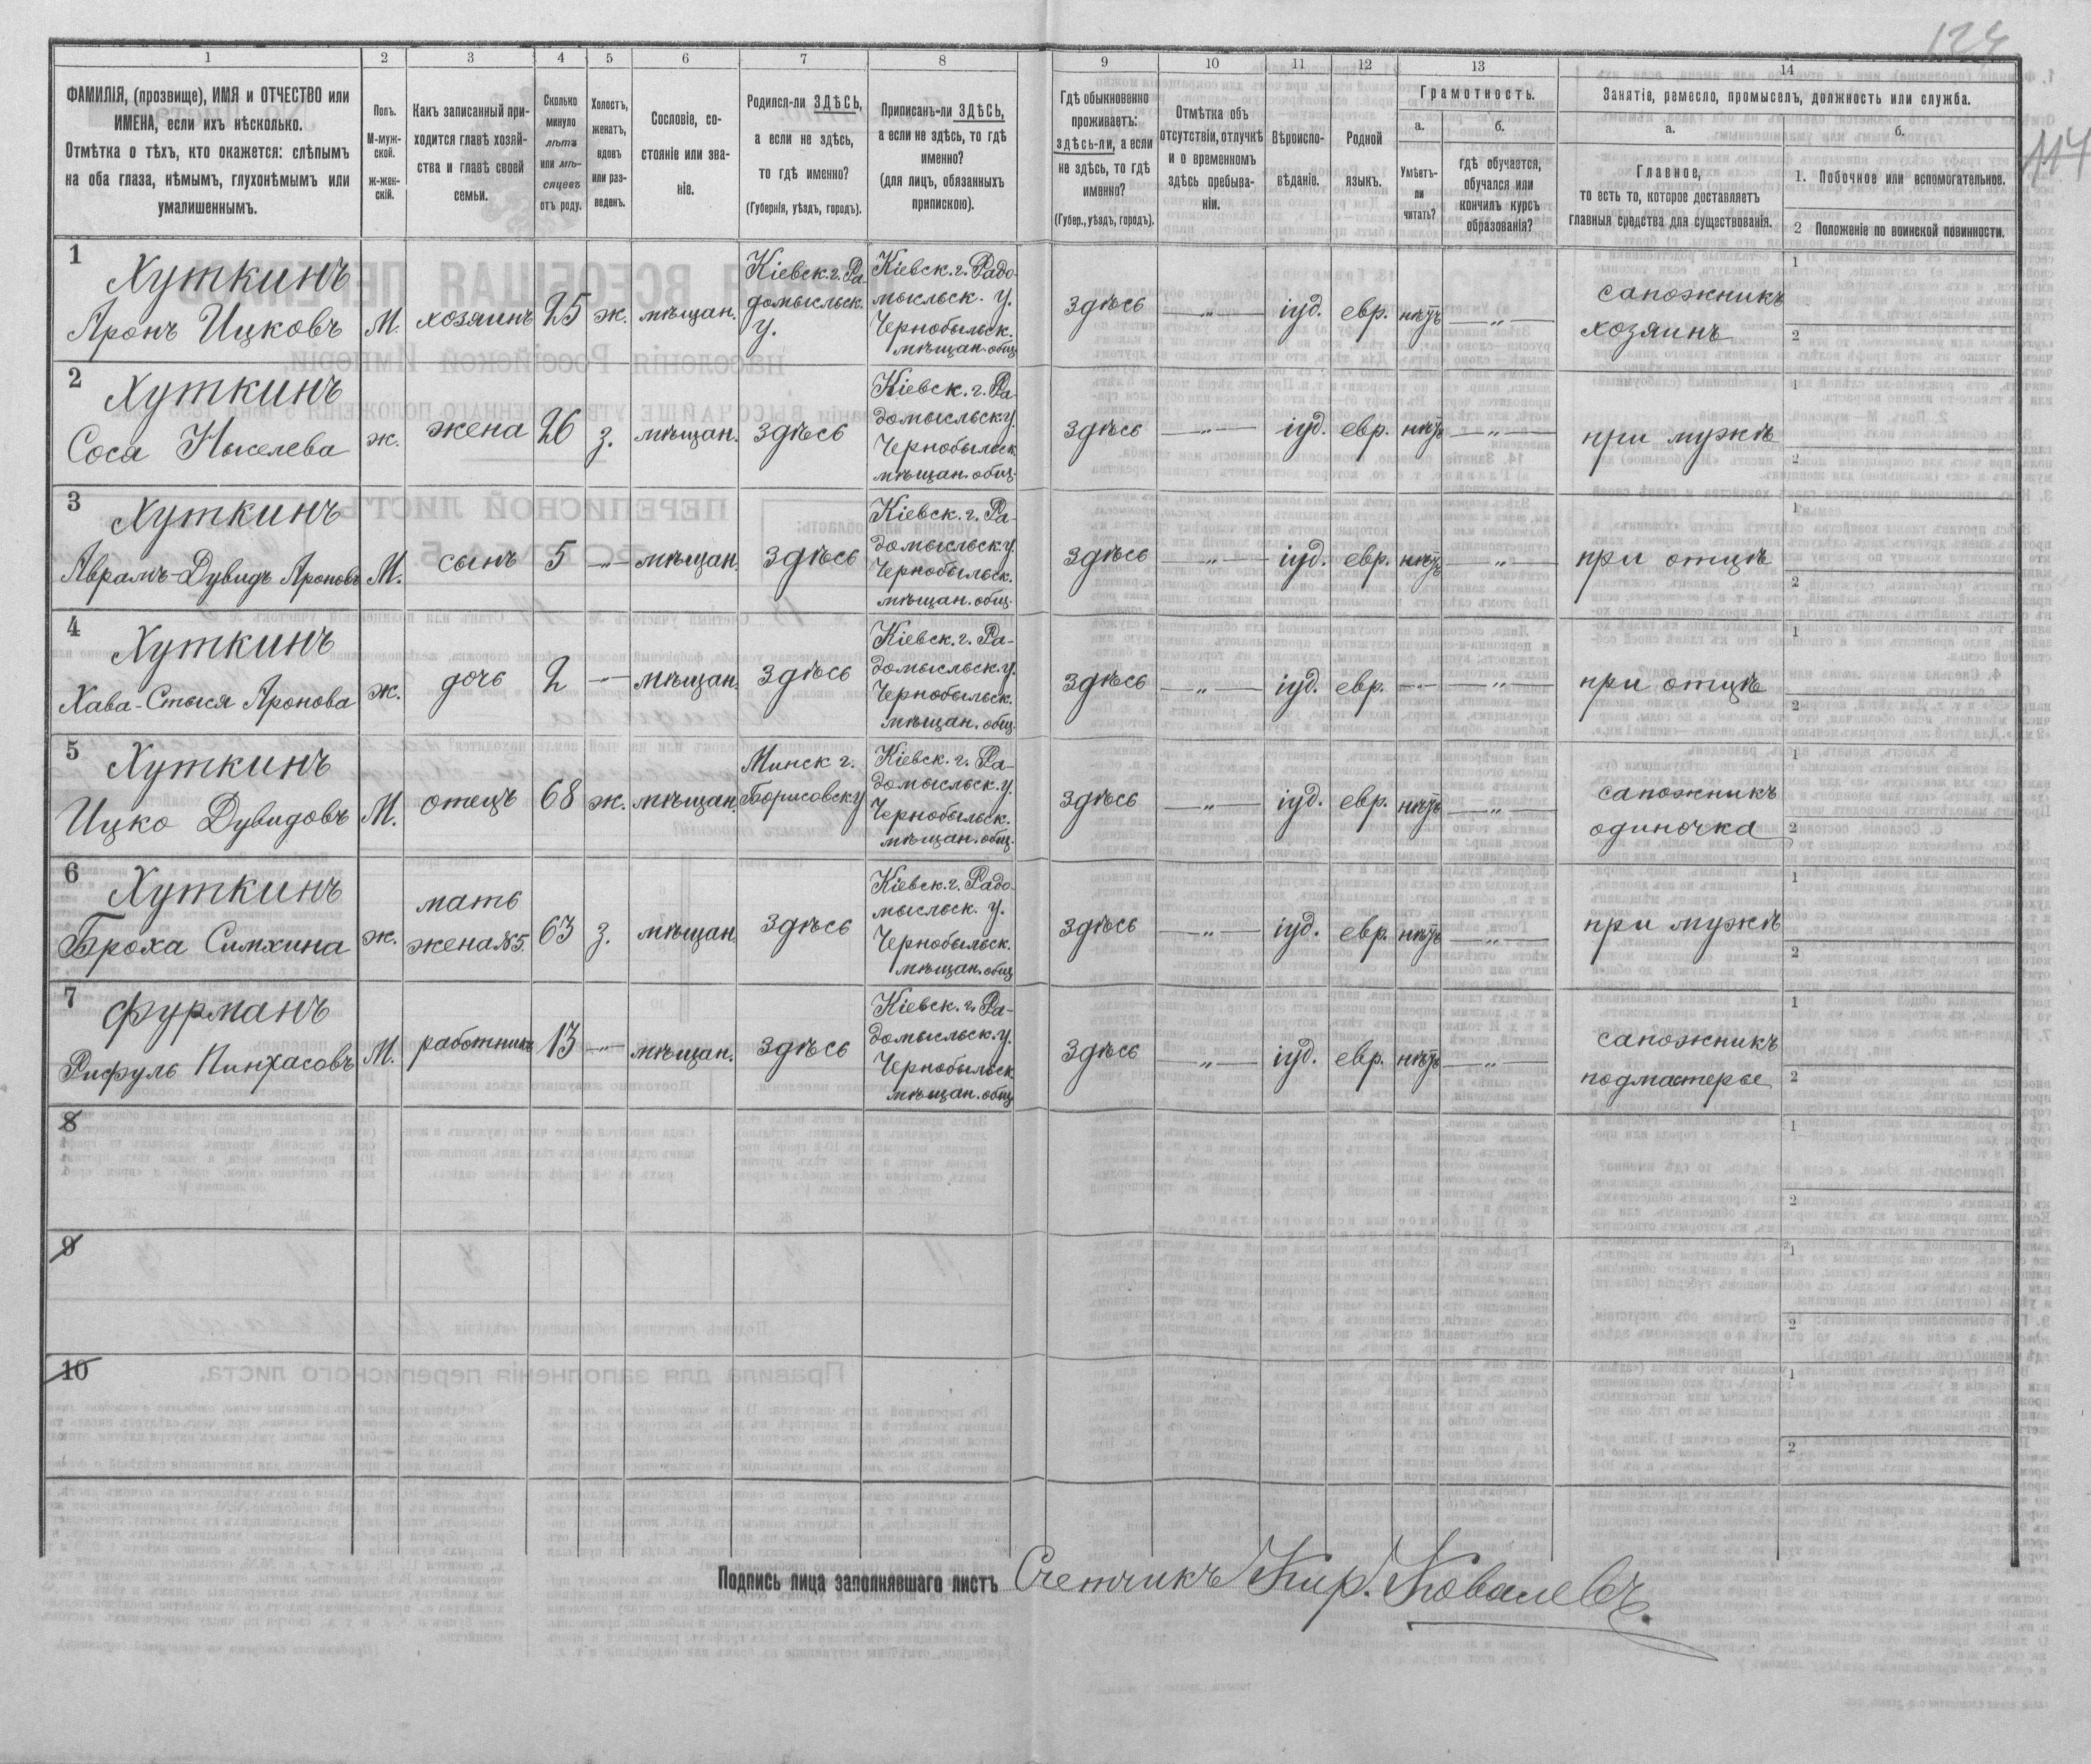 124
114
1 2 3 4 5 6 7 8 9 10 11 12 13 14
ФАМИЛІЯ, (прозвище), ИМЯ и ОТЧЕСТВО или
ИМЕНА, если ихъ нѣсколько.
Отмѣтка о тѣхъ, кто окажется: слѣпымъ
на оба глаза, нѣмымъ, глухонѣмымъ или
умалишеннымъ.
Полъ.
М-муж-
ской.
ж-жен-
скій.
Какъ записанный при-
ходится главѣ хозяй-
ства и главѣ своей
семьи.
Сколько
минуло
лѣтъ
или мѣ-
сяцевъ
отъ роду.
Холостъ,
женатъ,
вдовъ
или раз-
веденъ.
Сословіе, со-
стояніе или зва-
ніе.
Родился-ли ЗДѢСЬ,
а если не здѣсь,
то гдѣ именно?
(Губернія, уѣздъ, городъ).
Приписанъ-ли ЗДѢСЬ,
а если не здѣсь, то гдѣ
именно?
(для лицъ, обязанныхъ
припискою).
Гдѣ обыкновенно
проживаетъ:
здѣсь-ли, а если
не здѣсь, то гдѣ
именно?
(Губер., уѣздъ, городъ).
Отмѣтка объ
отсутствіи, отлучкѣ
и о временномъ
здѣсь пребыва-
ніи.
Вѣроиспо-
вѣданіе.
Родной
языкъ.
Грамотность.
а.
Умѣетъ-
ли
читать?
б.
гдѣ обучается,
обучался или
кончилъ курсъ
образованія?
Занятіе, ремесло, промыселъ, должность или служба.
а.
Главное,
то есть то, которое доставляетъ
главныя средства для существованія.
б.
1. Побочное или вспомогательное.
2 Положеніе по воинской повинности.
1
Хуткинъ
Аронъ Ицковъ
М.
хозяинъ
25
ж.
мѣщан.
Кіевск. г. Ра
домысльск.
у.
Кіевск. г. Радо-
мысльск. у.
Чернобыльск.
мѣщан. общ.
здѣсь
— „ —
іуд.
евр.
нѣтъ
— „ —
сапожникъ
хозяинъ
1
2
2
Хуткинъ
Соса
ж.
жена
26
з.
мѣщан.
здѣсь
Кіевск. г. Ра
домысльск. у.
Чернобыльск.
мѣщан. общ.
здѣсь
— „ —
іуд.
евр.
нѣтъ
— „ —
при мужѣ
1
2
3
Хуткинъ
Аврамъ-Дувидъ Ароновъ
М.
сынъ
5
— „ —
мѣщан.
здѣсь
Кіевск. г. Ра-
домысльск. у.
Чернобыльск.
мѣщан. общ.
здѣсь
— „ —
іуд.
евр.
нѣтъ
— „ —
при отцѣ
1
2
4
Хуткинъ
Хава-Стыся Аронова
ж.
дочь
2
— „ —
мѣщан.
здѣсь
Кіевск. г. Ра-
домысльск. у.
Чернобыльск.
мѣщан. общ.
здѣсь
— „ —
іуд.
евр.
— „ —
— „ —
при отцѣ
1
2
5
Хуткинъ
Ицко Дувидовъ
М.
отецъ
68
ж.
мѣщан.
Минск г.
Борисовск у
Кіевск. г. Ра-
домысльск. у.
Чернобыльск.
мѣщан. общ.
здѣсь
— „ —
іуд.
евр.
нѣтъ
— „ —
сапожникъ
одиночка
1
2
6
Хуткинъ
Броха Симхина
ж.
мать
жена №5.
63
з.
мѣщан.
здѣсь
Кіевск. г. Радо-
мысльск. у.
Чернобыльск.
мѣщан. общ.
здѣсь
— „ —
іуд.
евр.
нѣтъ
— „ —
при мужѣ
1
2
7
Фурманъ
Рифуль Пинхасовъ
М.
работникъ
13
— „ —
мѣщан.
здѣсь
Кіевск. г. Ра-
домысльск. у.
Чернобыльск.
мѣщан. общ.
здѣсь
— „ —
іуд.
евр.
нѣтъ
— „ —
сапожникъ
подмастерье
1
2
8
1
2
9
1
2
10
1
2
Подпись лица заполнявшаго листъ Счетчикъ Кир. Ковалевъ.